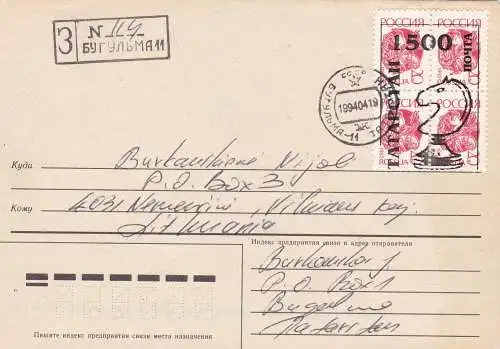 З
N 114
БУГУЛЬМА 11
РОССИЯ РОССИЯ
1500
ПОЧТА
ТАТАРСТАН
РОССИЯ
БУГУЛЬМА-11
19940419
Куда
P.O. Box 3
Кому
4031 Nemenčinė, Vilniaus raj.
Lithuania
Индекс предприятия связи и адрес отправителя
P.O. Box 1
Bugulma
Tatarstan
Пишите индекс предприятия связи места назначения